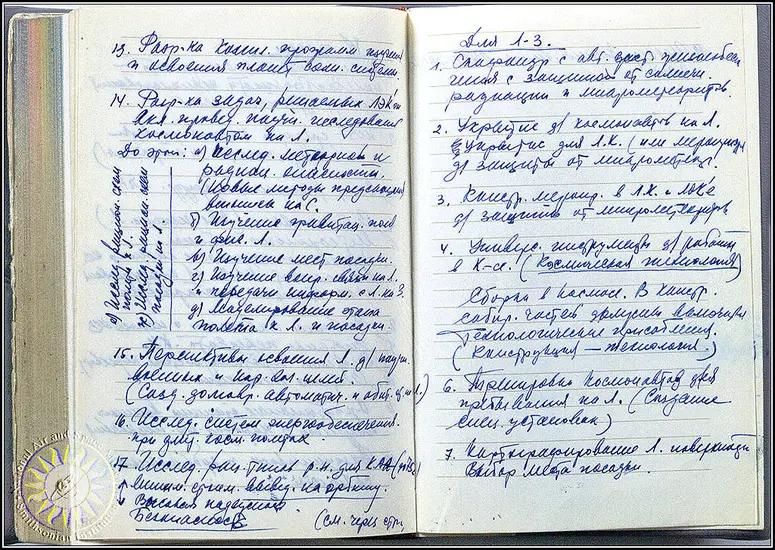 13. Разр-ка компл. программ изучения
и освоения планет солн. системы
14. Разр-ка задач, решаемых ЛЭК'ом
вкл. провед. научн. исследований
космонавтом на Л.
До этого: а) Исслед. метеорной и
радиац. опасности.
(Новые методы предсказания
вспышки на С.
б) Изучение гравитац. поля
и физ. Л.
в) Изучение мест посадки.
г) Изучение вопр. связи на Л. и
передачи информ. с Л. на З.
д) Моделирование этапа
полета к Л. и посадки.
е) Исслед. радиац. на
полета к Л.
ж) Исслед. радиац.
посадки на Л.
15. Перспективы освоения Л. д/ научн.
военных и нар. хоз. целей.
(Созд. долговр. автоматич. и обит. ст. на Л.)
16. Исслед. систем энергообеспечения
при длит. косм. полетах.
17. Исслед. р.н. для КЛА
вывед. на орбиту.
Высокая надежность
Безопасность
(см. через стр.
Для Л-3.
1. Скафандр с авт. сист. жизнеобеспе-
чения с защитой от солнечн.
радиации и микрометеоритов.
2. Укрытие д/ космонавтов на Л.
Укрытие для Л.К. (или мероприятия
д/ защиты от микрометеор.
3. Констр. меропр. в ЛК и ЛОК'е
д/ защиты от микрометеоритов
4. Универс. инструменты д/ работы
в К-се. (Космическая технология)
Сборка в космосе. В констр.
собир. частей должны включаться
технологические приспособления.
(Конструкция — технология.)
6. Тренировка космонавтов для
пребывания на Л. (Создание
спец. установок)
7. Картографирование Л. поверхности
Выбор места посадки.
National Air and Space
Smithsonian Institution